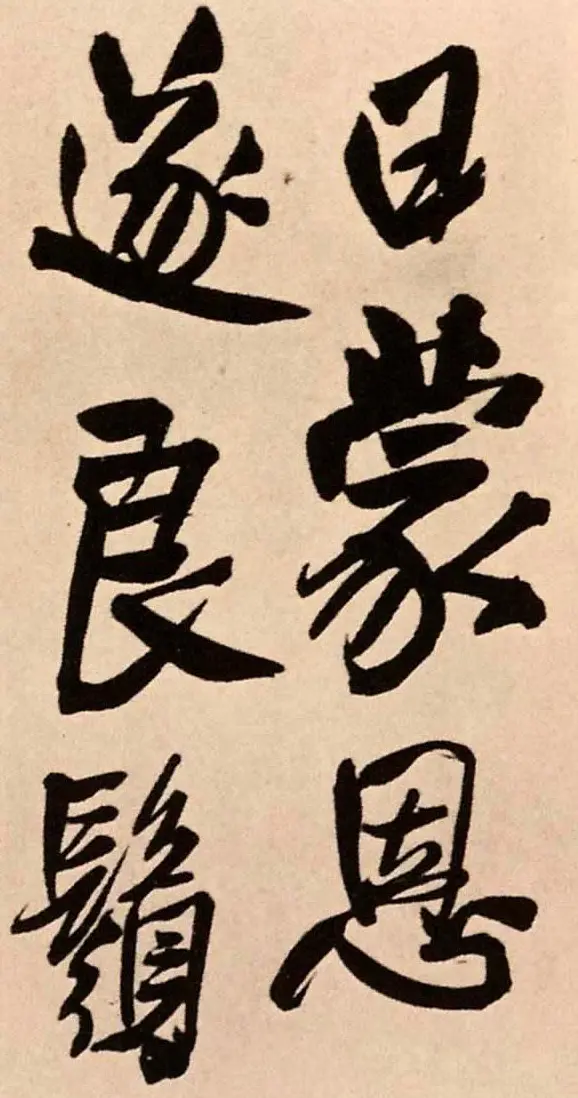 日蒙恩
遂良鬚